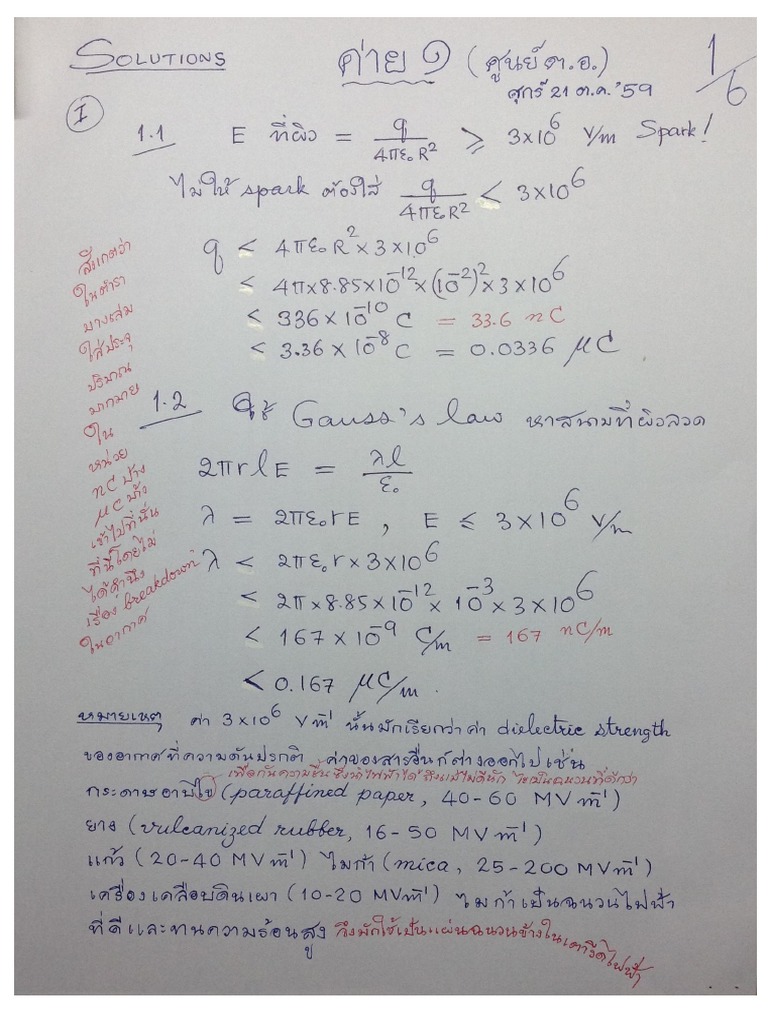 SOLUTIONS
ค่าย ๑ (ศูนย์ ต.อ.)
1/6
ศุกร์ 21 ต.ค. '59
I
1.1 E ที่ผิว = q/4πε₀R² ≥ 3×10⁶ V/m Spark!
ไม่ให้ spark ต้องใส่ q/4πε₀R² < 3×10⁶
q < 4πε₀R²×3×10⁶
< 4π×8.85×10⁻¹²×(10⁻²)²×3×10⁶
< 336×10⁻¹⁰ C = 33.6 nC
< 3.36×10⁻⁸ C = 0.0336 μC
สังเกตว่า
ในตำรา
บางเล่ม
ใส่ประจุ
ปริมาณ
มากมาย
ใน
หน่วย
nC บ้าง
μC บ้าง
เข้าไปที่นั่น
ที่นี่โดยไม่
ได้คำนึง
เรื่อง "breakdown"
ในอากาศ
1.2 ใช้ Gauss's law หาสนามที่ผิวลวด
2πrlE = λl/ε₀
λ = 2πε₀rE , E ≤ 3×10⁶ V/m
λ < 2πε₀r×3×10⁶
< 2π×8.85×10⁻¹²×10⁻³×3×10⁶
< 167×10⁻⁹ C/m = 167 nC/m
< 0.167 μC/m.
หมายเหตุ ค่า 3×10⁶ V m⁻¹ นั้นมักเรียกว่าค่า dielectric strength
ของอากาศที่ความดันปรกติ ค่าของสารอื่นก็ต่างออกไปเช่น
เพื่อกันความชื้นซึ่งนำไฟฟ้าได้ ถึงแม้ไม่ดีนัก ไขเป็นฉนวนที่ดีกว่า
กระดาษอาบไข (paraffined paper, 40-60 MV m⁻¹)
ยาง (vulcanized rubber, 16-50 MV m⁻¹)
แก้ว (20-40 MV m⁻¹) ไมก้า (mica, 25-200 MV m⁻¹)
เครื่องเคลือบดินเผา (10-20 MV m⁻¹) ไมก้าเป็นฉนวนไฟฟ้า
ที่ดีและทนความร้อนสูง จึงมักใช้เป็นแผ่นฉนวนข้างในเตารีดไฟฟ้า